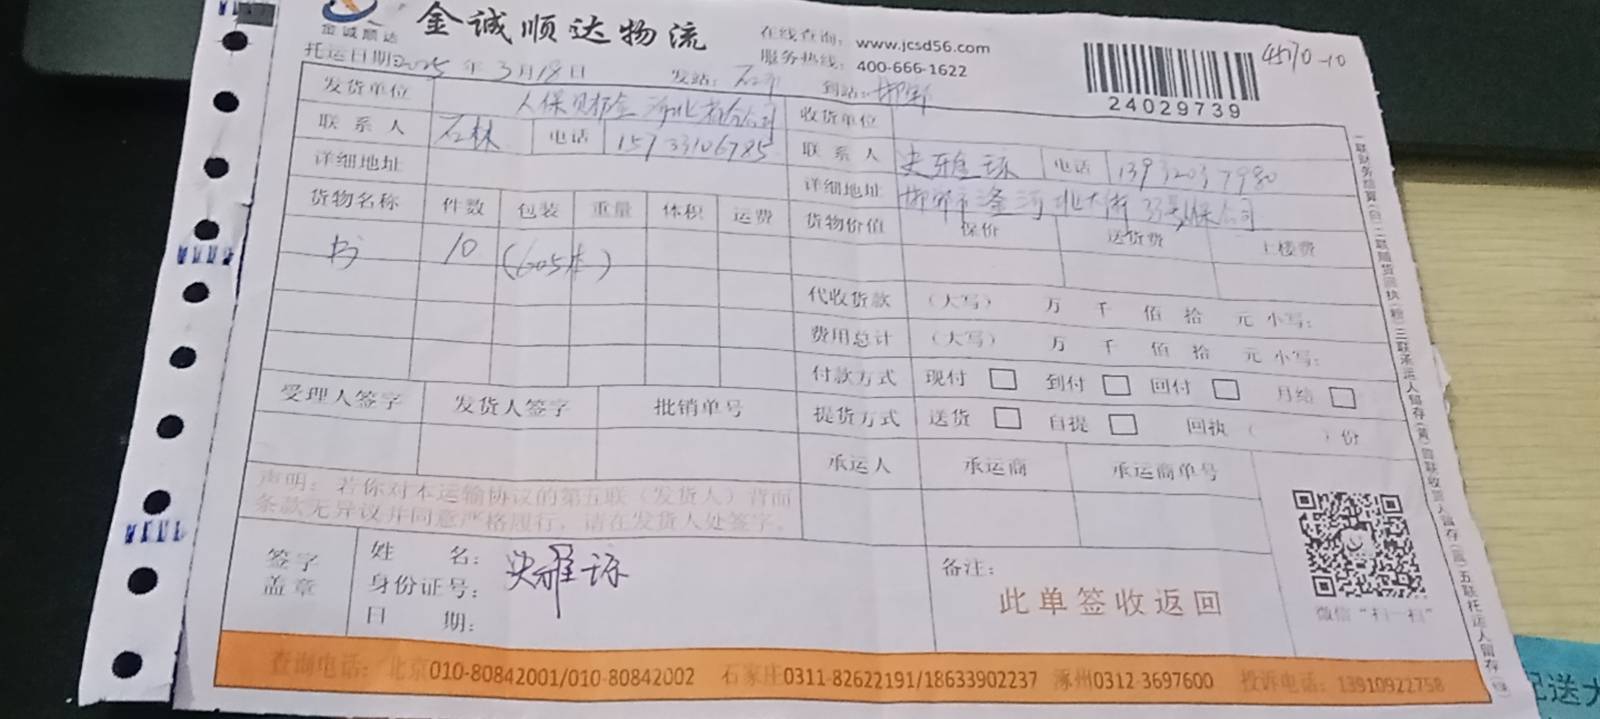 金诚顺达
金诚顺达物流
在线查询: www.jcsd56.com
服务热线: 400-666-1622
4570-10
24029739
托运日期:2025年3月18日 发站: 到站: 邯郸
发货单位 人保财险河北省分公司 收货单位
联系人 石林 电话 15733106785 联系人 史雅琼 电话 13932037980
详细地址 详细地址 邯郸市滏河北大街33号人保公司
货物名称 件数 包装 重量 体积 运费 货物价值 保价 送货费 上楼费
书 10 (605本)
代收货款 (大写) 万 千 佰 拾 元 小写:
费用总计 (大写) 万 千 佰 拾 元 小写:
付款方式 现付 □ 到付 □ 回付 □ 月结 □
受理人签字 发货人签字 批销单号 提货方式 送货 □ 自提 □ 回执( )份
承运人 承运商 承运商单号
声明:若你对本运输协议的第五联(发货人)背面
条款无异议并同意严格履行,请在发货人处签字。
签字
盖章
姓 名: 史雅琼
身份证号:
日 期:
备注:
此单签收返回
微信“扫一扫”
一联财务结算(白)二联随货回执(粉)三联承运人留存(黄)四联收货人留存(蓝)五联托运人留存(绿)
查询电话: 北京010-80842001/010-80842002 石家庄0311-82622191/18633902237 涿州0312-3697600 投诉电话: 13910922758
配送大